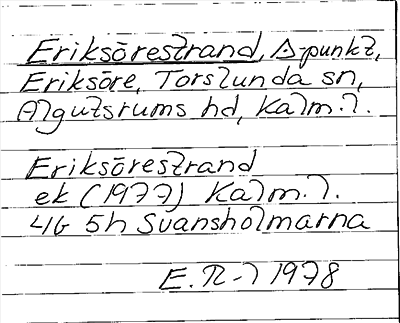 Eriksörestrand, Δ-punkt,
Eriksöre, Torslunda sn,
Algutsrums hd, Kalm. l.
Eriksörestrand
ek (1977) Kalm. l.
4G 5h Svansholmarna
E. N-l 1978